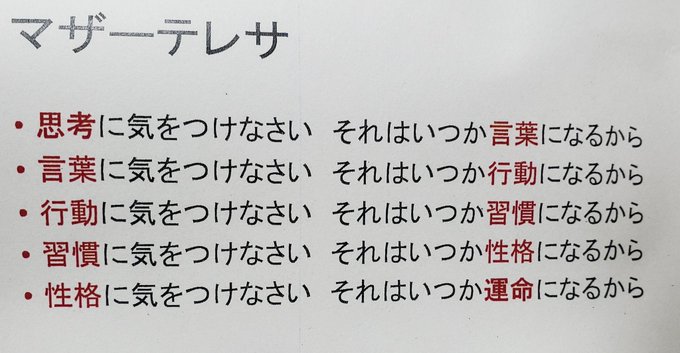 マザーテレサ
・思考に気をつけなさい それはいつか言葉になるから
・言葉に気をつけなさい それはいつか行動になるから
・行動に気をつけなさい それはいつか習慣になるから
・習慣に気をつけなさい それはいつか性格になるから
・性格に気をつけなさい それはいつか運命になるから